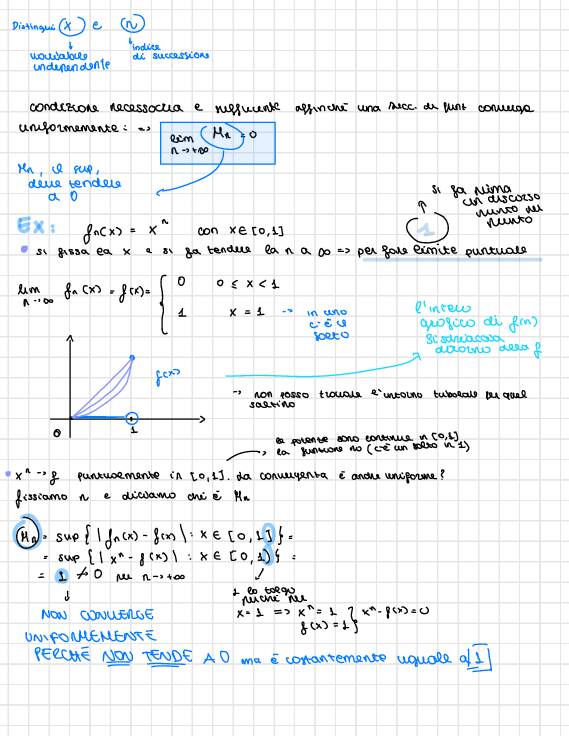 Distingui x e n
variabile
indipendente
indice
di successione
condizione necessaria e sufficiente affinché una succ. di funt converga
uniformemente: => lim Mn = 0
n→+∞
Mn, il sup,
deve tendere
a 0
si fa prima
un discorso
punto per
punto
1
Ex: fn(x) = x^n con x∈[0,1]
• si fissa la x e si fa tendere la n a ∞ => per fare limite puntuale
lim fn(x) = f(x) = { 0 0 ≤ x < 1
n→∞
1 x = 1 -> in uno
c'è il
salto
l'intero
grafico di f(n)
si schiaccia
attorno alla f
f(x)
0 1
-> non posso trovare l'intorno tubolare per quel
saltino
le potente sono continue in [0,1]
la funzione no (c'è un salto in 1)
• x^n -> f puntualmente in [0,1]. La convergenta è anche uniforme?
fissiamo n e diciamo chi è Mn
Mn = sup{|fn(x) - f(x)| : x ∈ [0,1]} =
= sup{|x^n - f(x)| : x ∈ [0,1)} =
= 1 ≠> 0 per n→+∞
1 lo tolgo
perché per
x = 1 => x^n = 1 } x^n - f(x) = 0
f(x) = 1
NON CONVERGE
UNIFORMEMENTE
PERCHÉ NON TENDE A 0 ma è costantemente uguale a 1